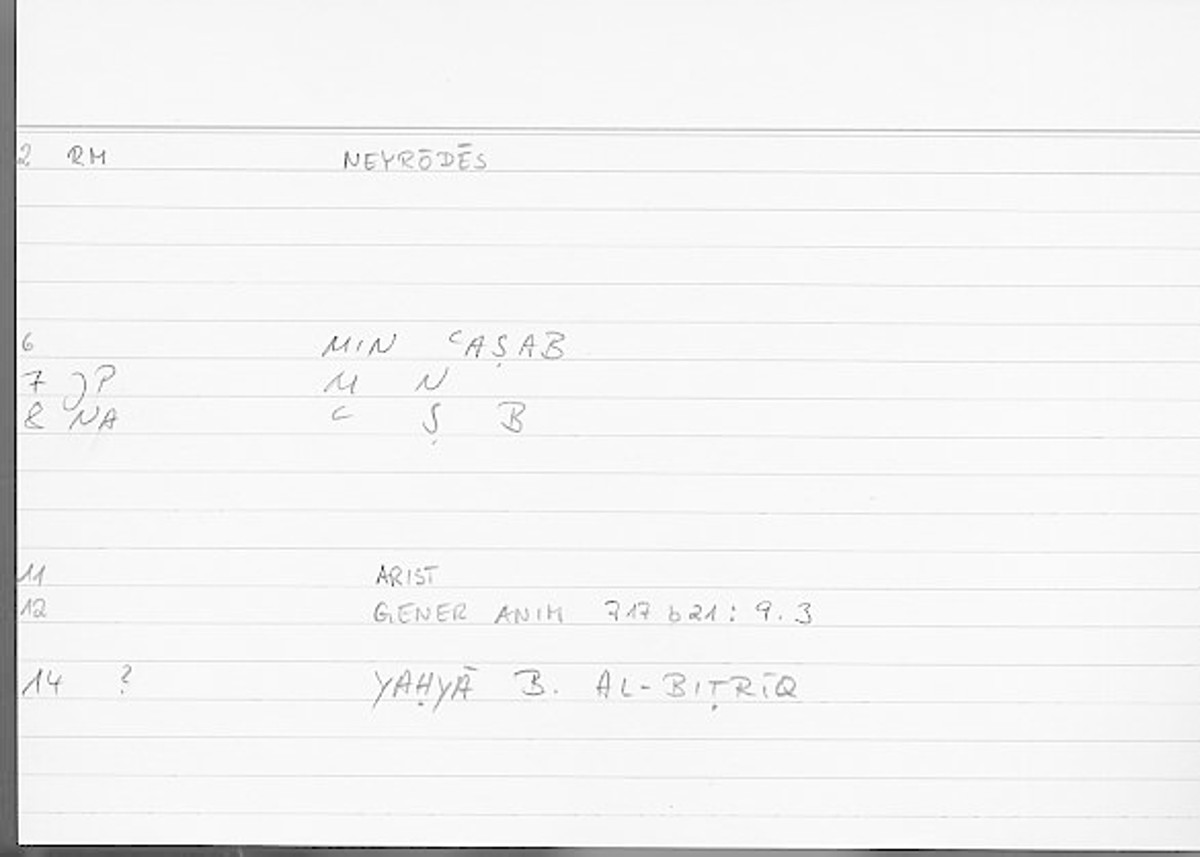 2 RM NEYRŌDĒS
6 MIN ʿAṢAB
7 )P M N
8 NA ʿ Ṣ B
11 ARIST
12 GENER ANIM 717 b21 : 9.3
14 ? YAḤYĀ B. AL-BIṬRĪQ